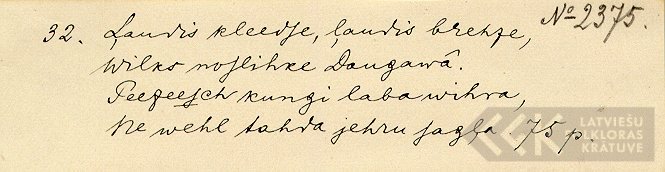 № 2375.
32. Ļaudis kleedſe, ļaudis brehze,
Wilks noſlihke Daugawâ.
Peezeeſch kungi laba wihra,
Ne wehl tahda jehru ſagļa. 75 p.
LATVIEŠU
FOLKLORAS
KRĀTUVE